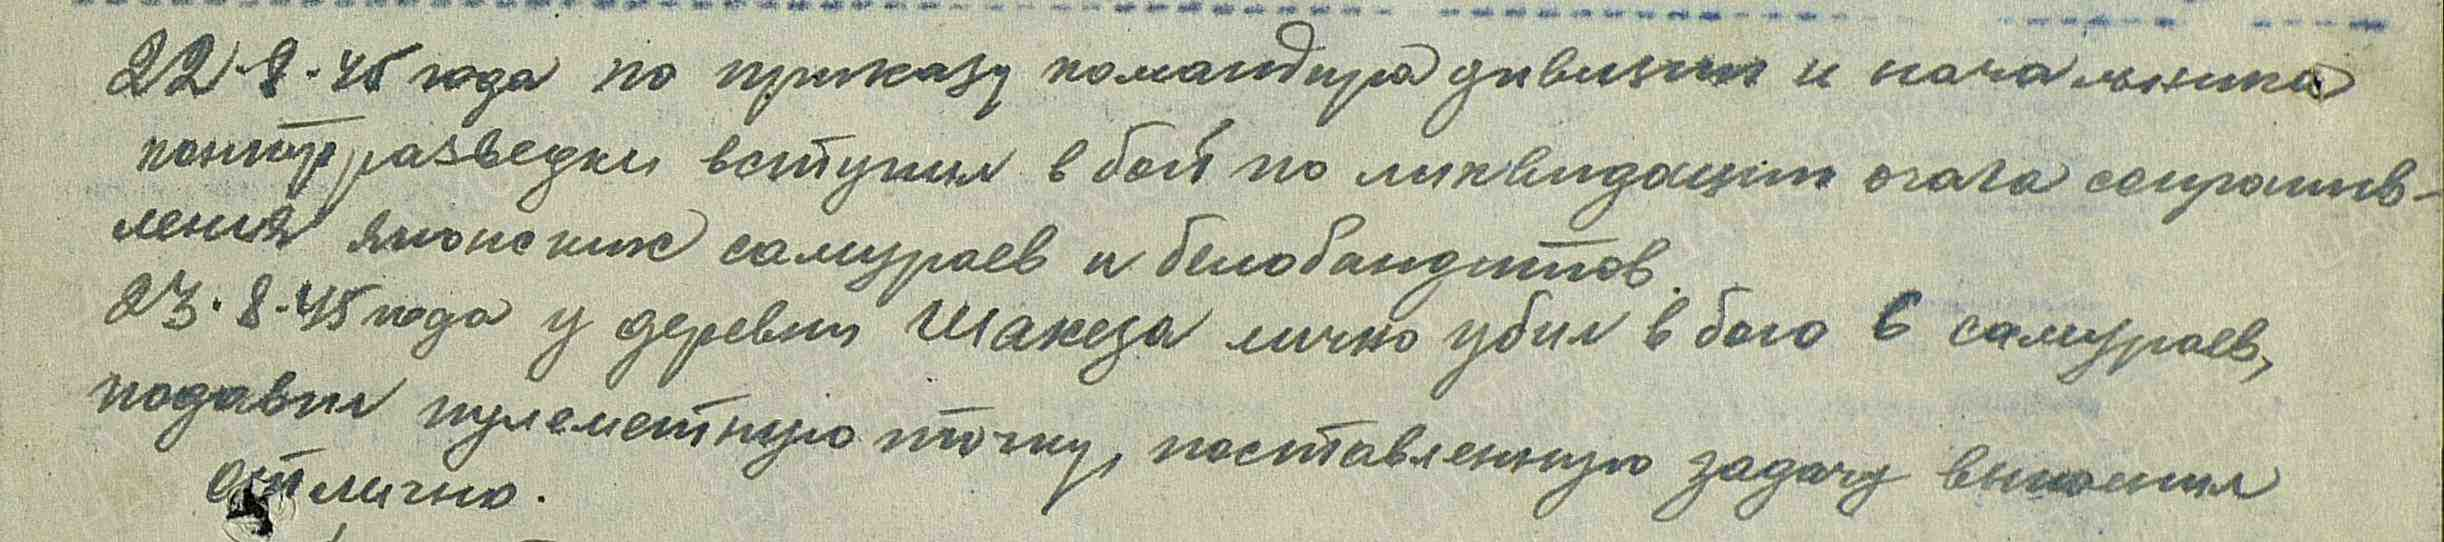 22.8.45 года по приказу командира дивизии и начальника
контрразведки вступил в бой по ликвидации очага сопротив-
ления японских самураев и белобандитов.
23.8.45 года у деревни Шакеза лично убил в бою 6 самураев,
подавил пулеметную точку, поставленную задачу выполнил
отлично.